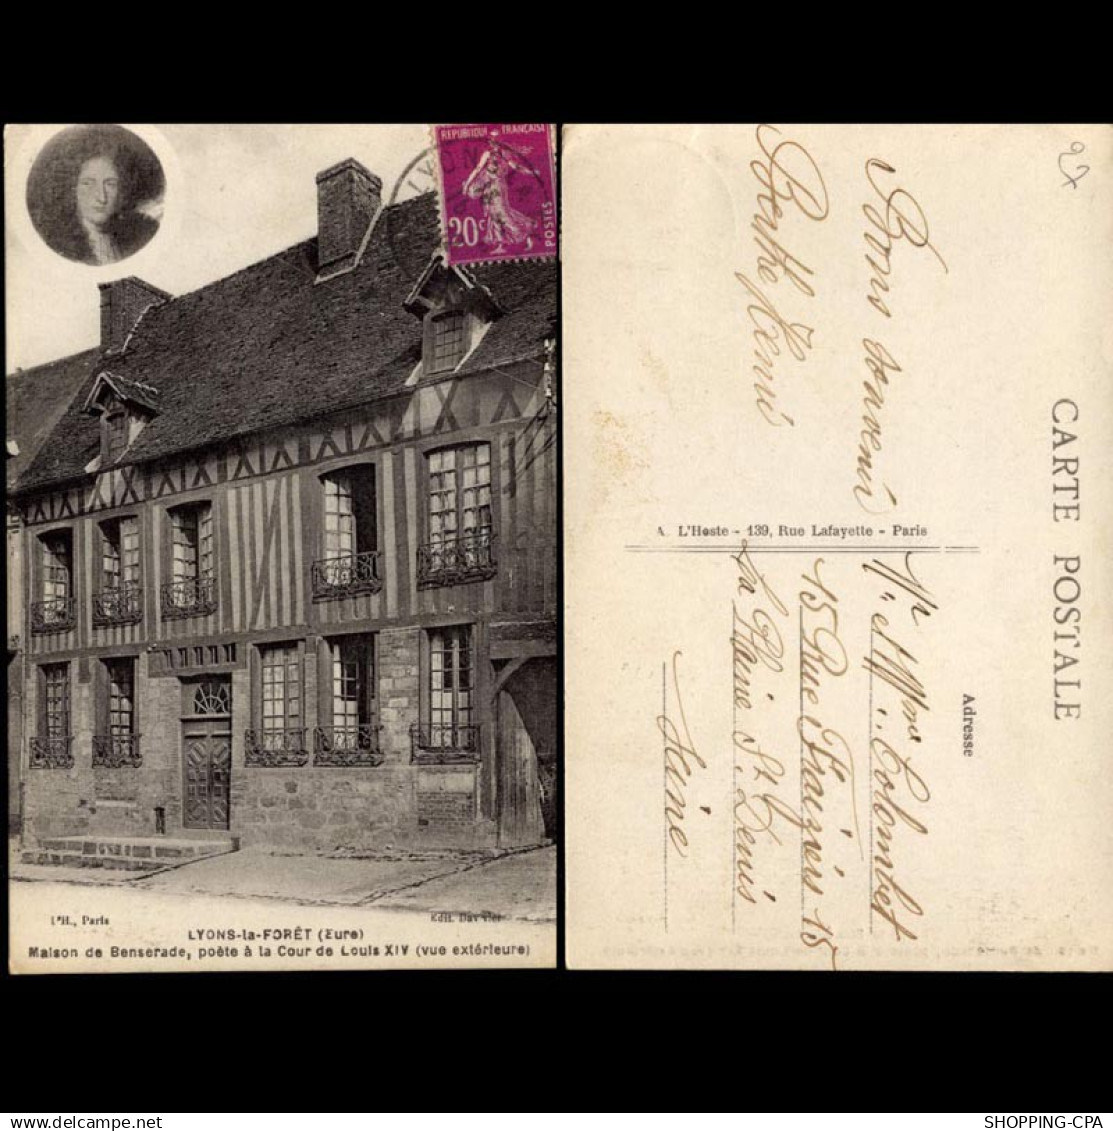 REPUBLIQUE FRANÇAISE
LYONS
20c
POSTES
L'H., Paris
Edit.
LYONS-la-FORÊT (Eure)
Maison de Benserade, poète à la Cour de Louis XIV (vue extérieure)
Bons souvenirs
Berthe
CARTE POSTALE
A. L'Hoste - 139, Rue Lafayette - Paris
Adresse
Mr et Mme Colombet
15 Rue Fraizier 15
La Plaine St Denis
Seine
SHOPPING-CPA